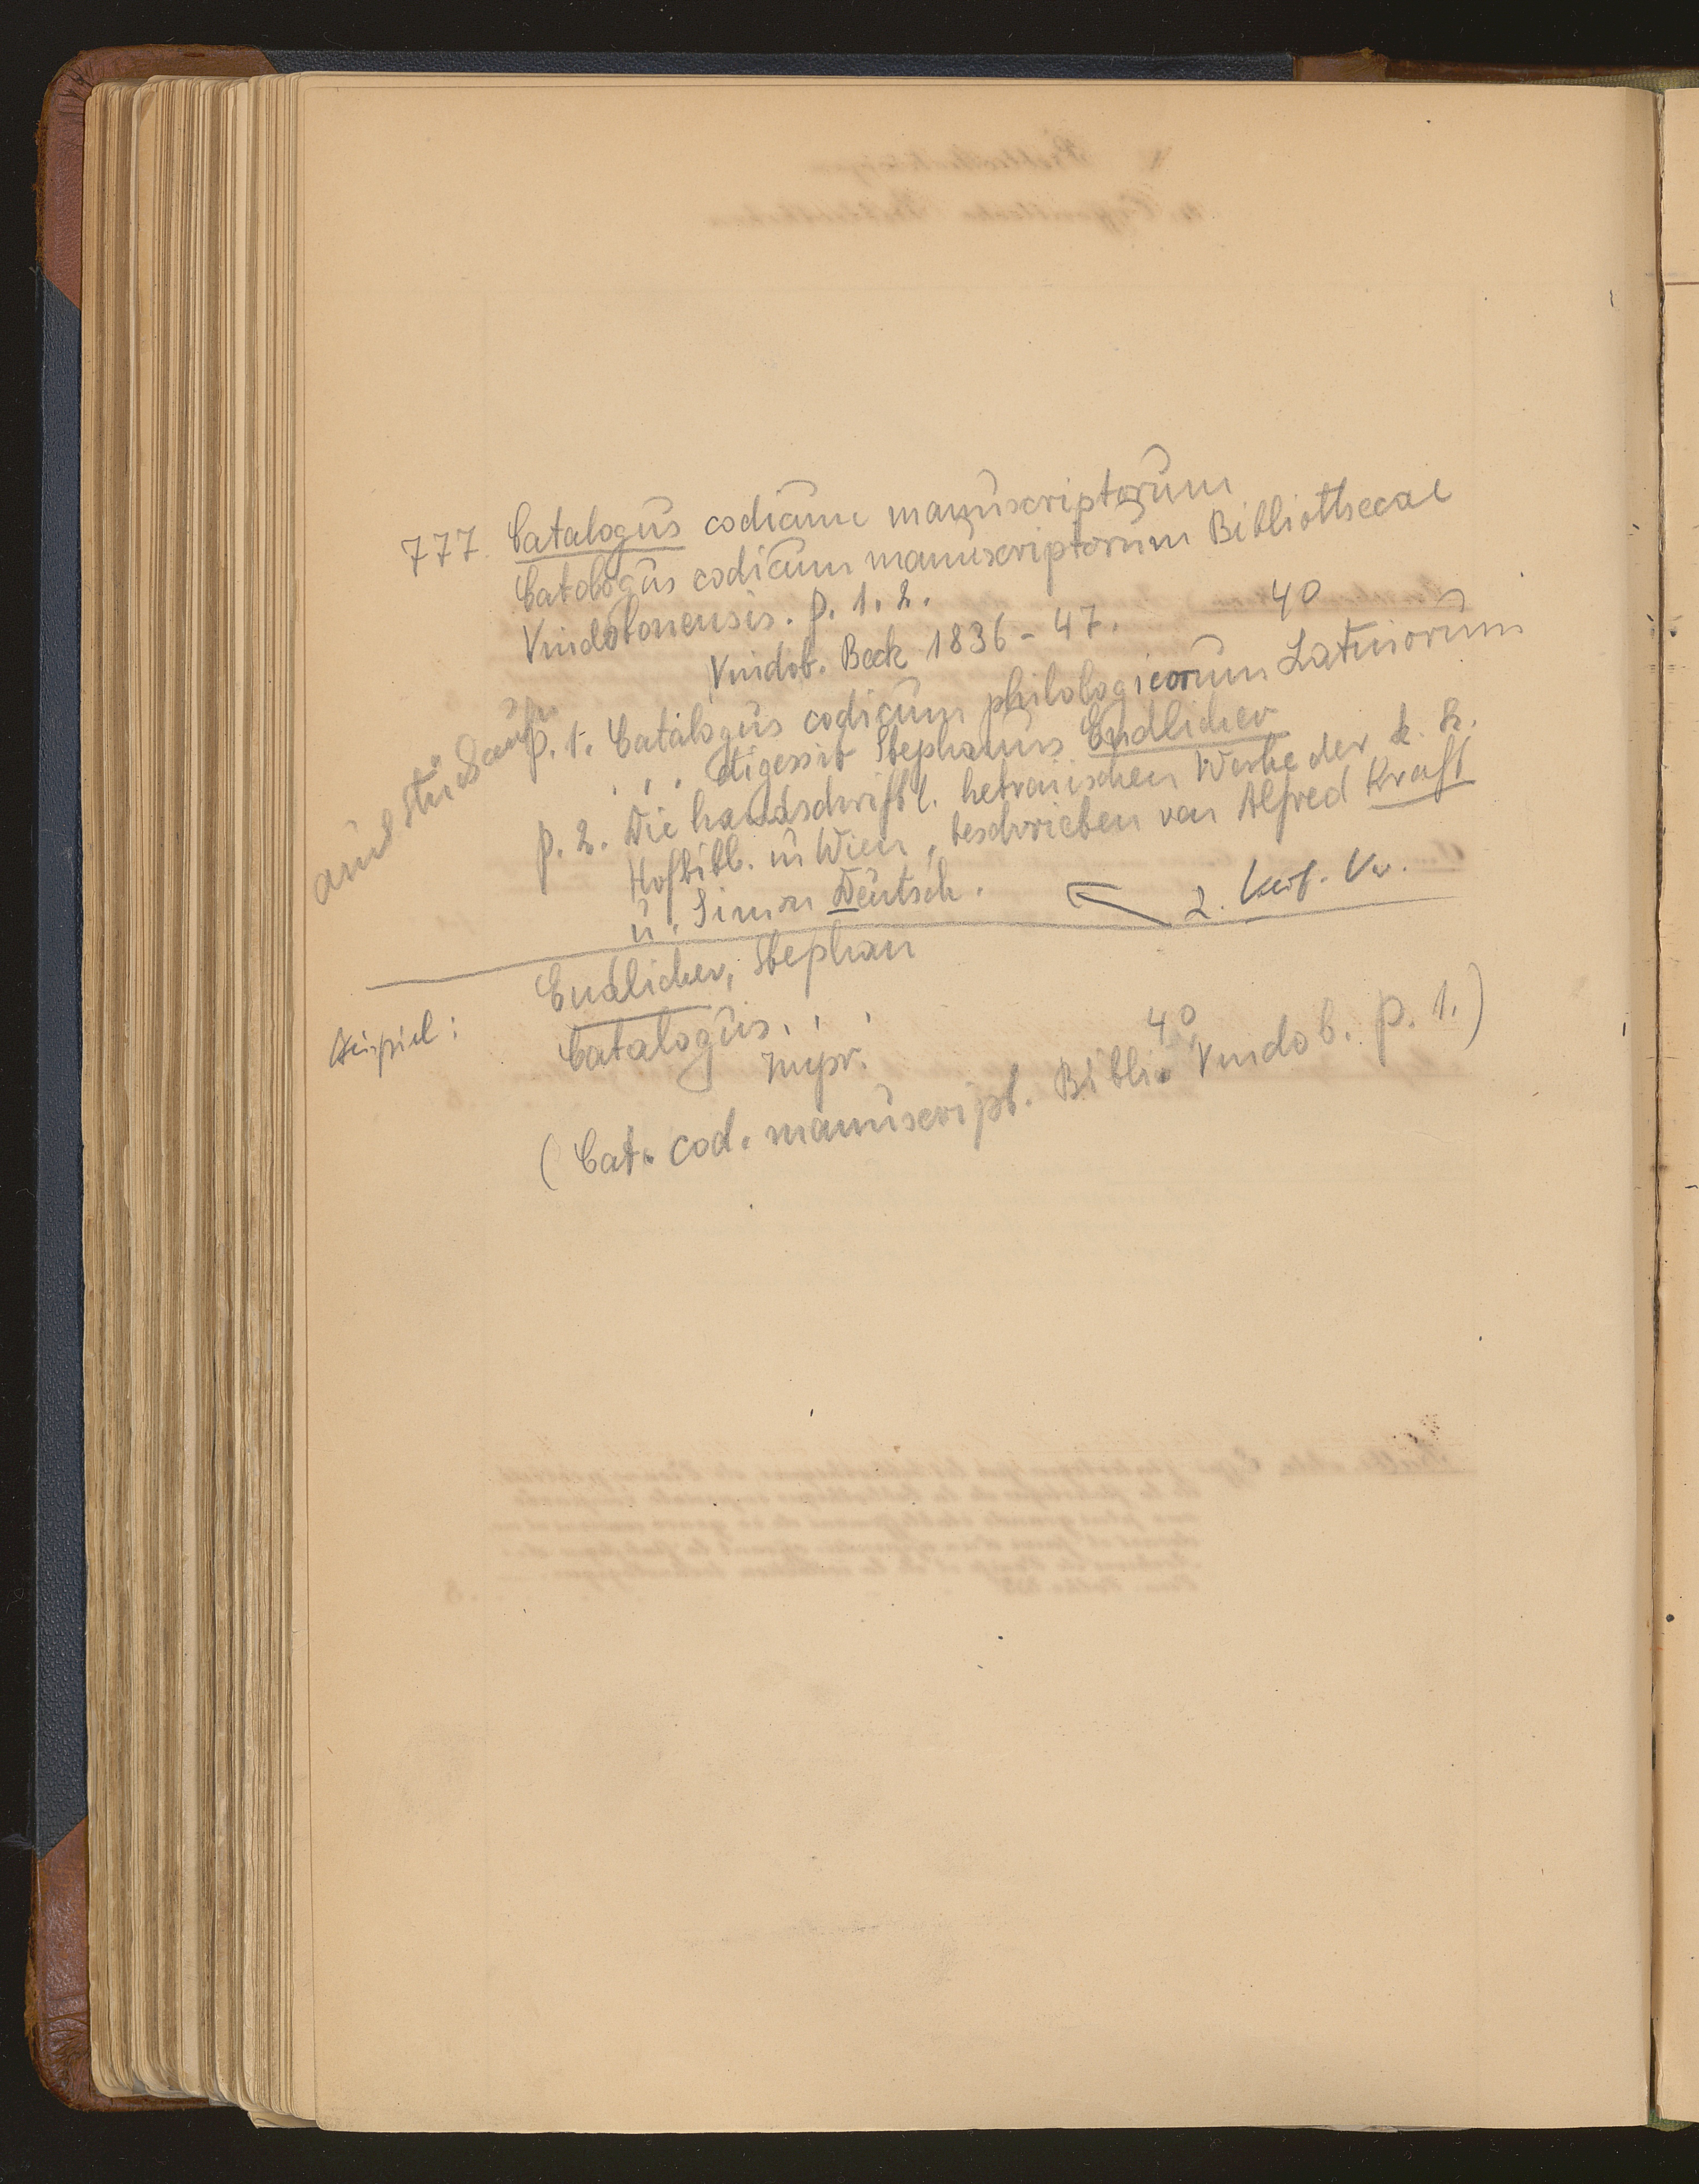 777. Catalogus codicum manuscriptorum
Catologus codicum manuscriptorum Bibliothecae
Vindobonensis. P. 1. 2.
Vindob. Beck 1836-47. 4°
P. 1. Catalogus codicum philologicorum Latinorum
. . . digessit Stephanus Endlicher
P. 2. Die handschriftl. hebräischen Werke der k. k.
Hofbibl. in Wien, beschrieben von Alfred Kraft
u. Simon Deutsch.
2. Verf. Vw.
Endlicher, Stephan
Beispiel:
Catalogus. . .
Impr. 4°
(Cat. cod. manuscript. Bibl. Vindob. P. 1.)